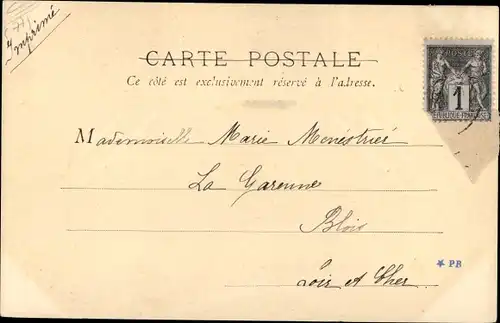 Imprimé
CARTE POSTALE
Ce côté est exclusivement réservé à l'adresse.
POSTES
1
RÉPUBLIQUE FRANÇAISE
Mademoiselle Marie Menestrier
La Garenne
Blois
Loir et Cher
* PB